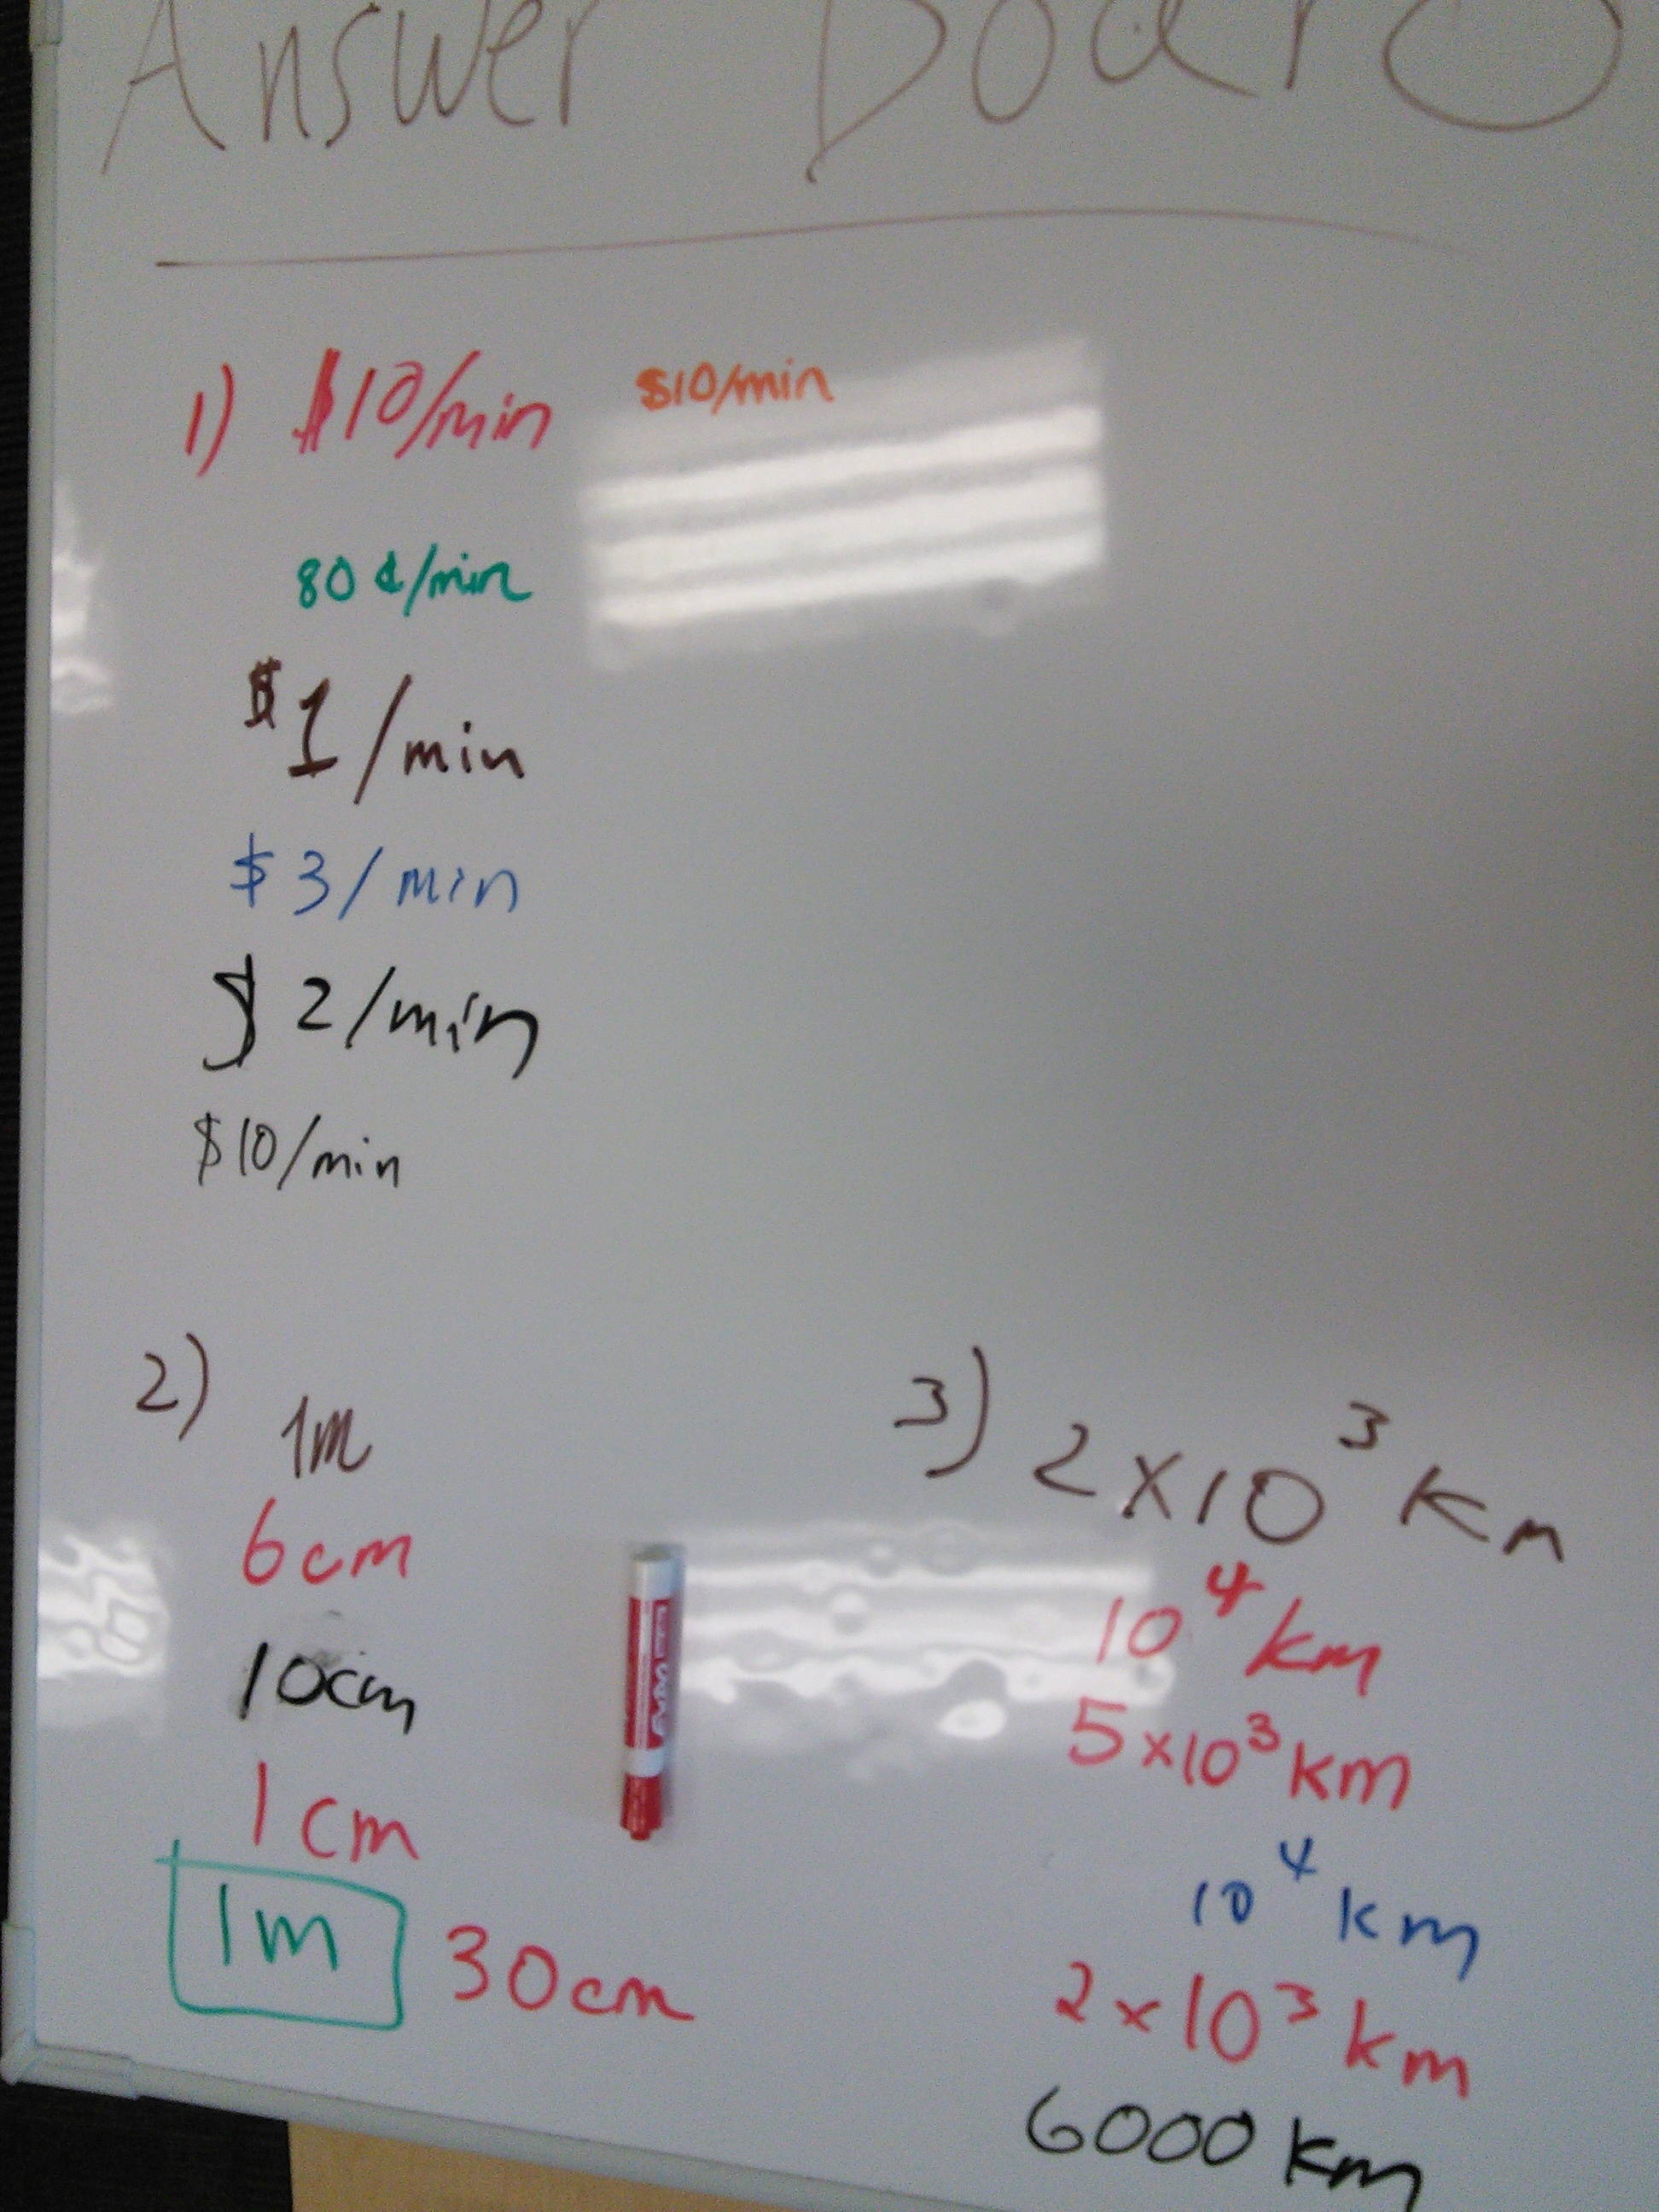 Answer Board
1) $10/min $10/min
80¢/min
$1/min
$3/min
$2/min
$10/min
2) 1m
6cm
10cm
1cm
1m 30cm
3) 2×10³ km
10⁴ km
5×10³ km
10⁴ km
2×10³ km
6000 km